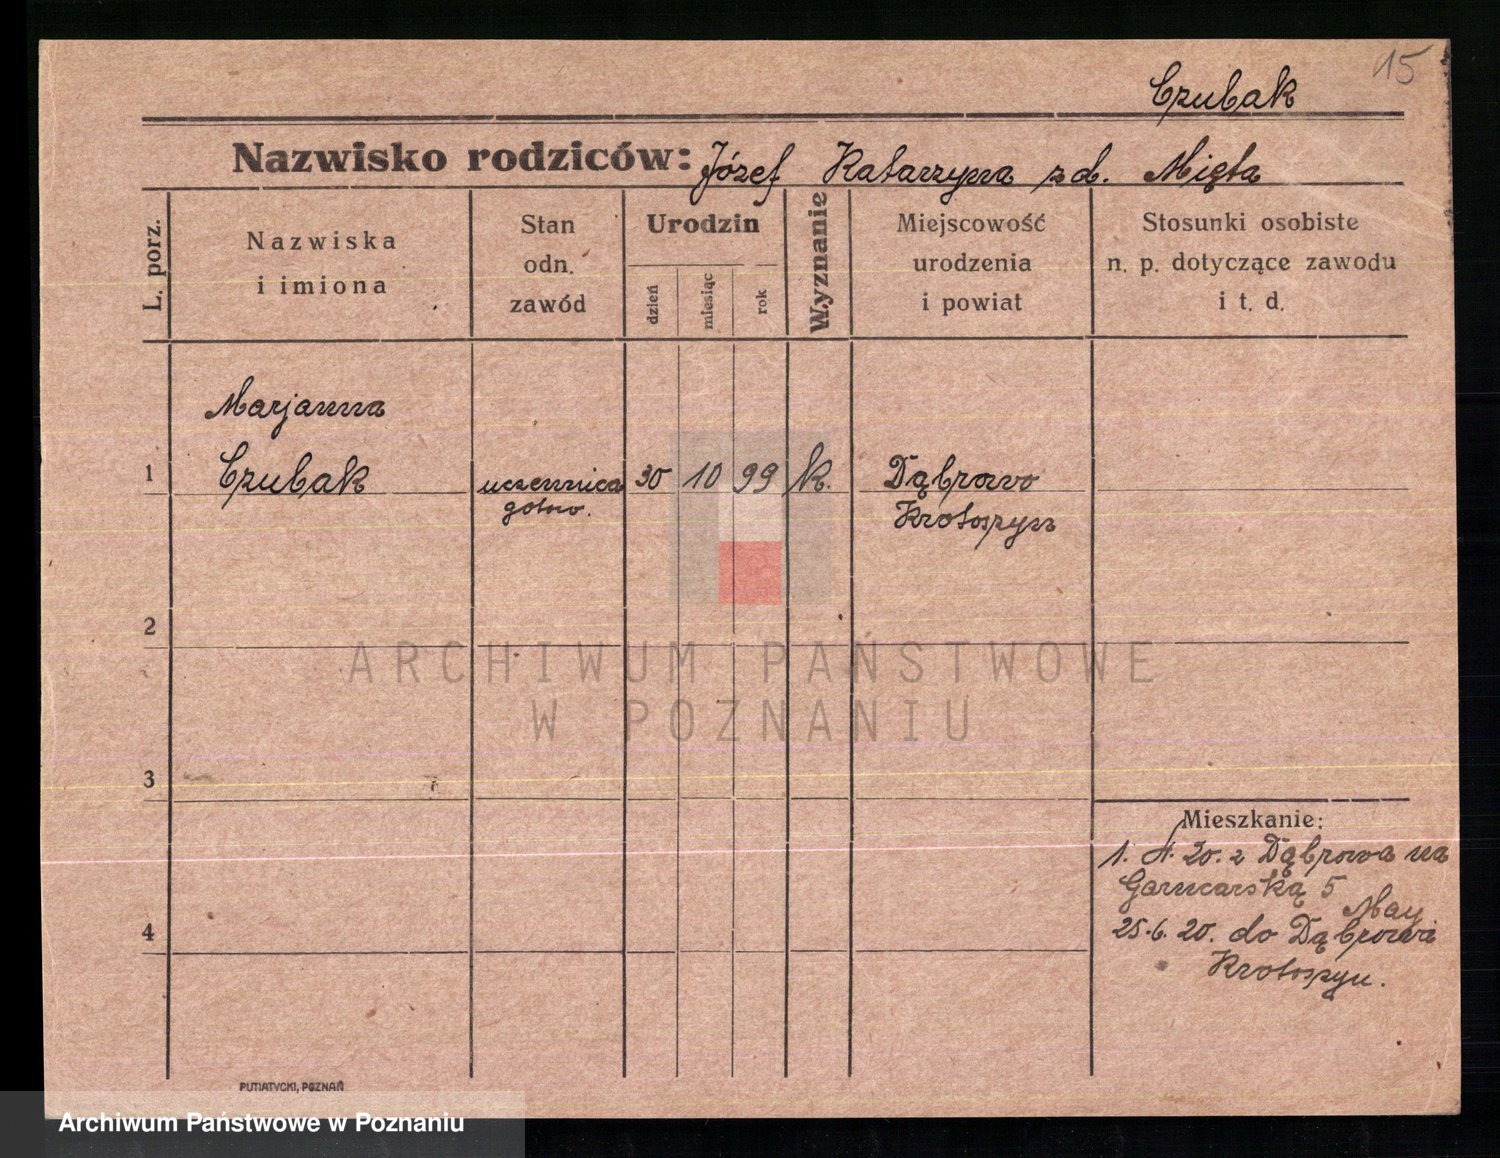 15
Czubak
Nazwisko rodziców: Józef Katarzyna zd. Mięta
L. porz.
Nazwiska
i imiona
Stan
odn.
zawód
Urodzin
dzień
miesiąc
rok
Wyznanie
Miejscowość
urodzenia
i powiat
Stosunki osobiste
n. p. dotyczące zawodu
i t. d.
Marjanna
1 Czubak uczennica 30 10 99 k. Dąbrowo
gotow. Krotoszyn
2
3
4
Mieszkanie:
1. 4. 20. z Dąbrowa na
Garncarską 5
May.
25.6. 20. do Dąbrowa
Krotoszyn.
PUTIATYCKI, POZNAŃ
ARCHIWUM PAŃSTWOWE
W POZNANIU
Archiwum Państwowe w Poznaniu